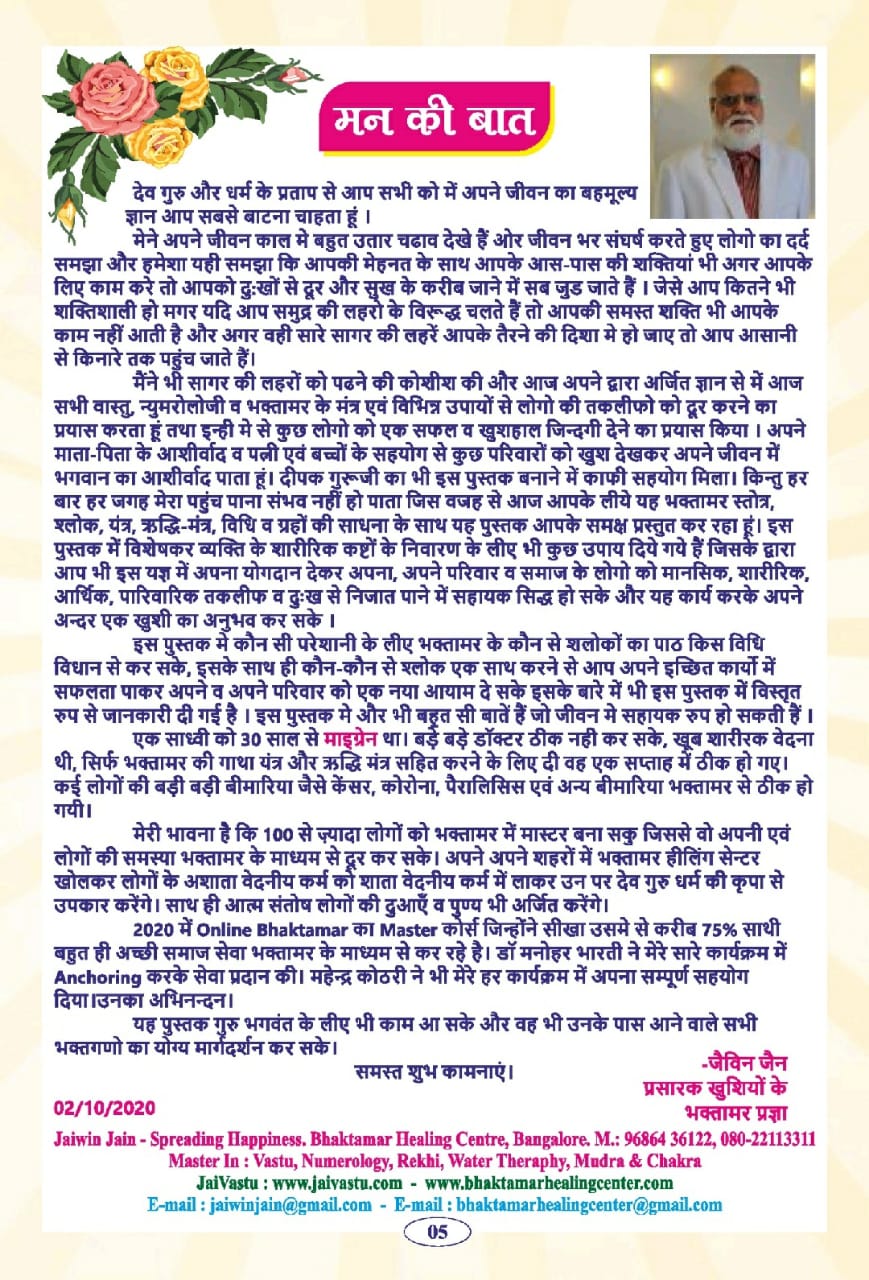 मन की बात
देव गुरु और धर्म के प्रताप से आप सभी को में अपने जीवन का बहमूल्य
ज्ञान आप सबसे बाटना चाहता हूं ।
मेने अपने जीवन काल मे बहुत उतार चढाव देखे हैं ओर जीवन भर संघर्ष करते हुए लोगो का दर्द
समझा और हमेशा यही समझा कि आपकी मेहनत के साथ आपके आस-पास की शक्तियां भी अगर आपके
लिए काम करे तो आपको दुःखों से दूर और सुख के करीब जाने में सब जुड जाते हैं । जेसे आप कितने भी
शक्तिशाली हो मगर यदि आप समुद्र की लहरो के विरूद्ध चलते हैं तो आपकी समस्त शक्ति भी आपके
काम नहीं आती है और अगर वही सारे सागर की लहरें आपके तैरने की दिशा मे हो जाए तो आप आसानी
से किनारे तक पहुंच जाते हैं।
मैंने भी सागर की लहरों को पढने की कोशीश की और आज अपने द्वारा अर्जित ज्ञान से में आज
सभी वास्तु, न्युमरोलोजी व भक्तामर के मंत्र एवं विभिन्न उपायों से लोगो की तकलीफो को दूर करने का
प्रयास करता हूं तथा इन्ही मे से कुछ लोगो को एक सफल व खुशहाल जिन्दगी देने का प्रयास किया । अपने
माता-पिता के आशीर्वाद व पत्नी एवं बच्चों के सहयोग से कुछ परिवारों को खुश देखकर अपने जीवन में
भगवान का आशीर्वाद पाता हूं। दीपक गुरूजी का भी इस पुस्तक बनाने में काफी सहयोग मिला। किन्तु हर
बार हर जगह मेरा पहुंच पाना संभव नहीं हो पाता जिस वजह से आज आपके लीये यह भक्तामर स्तोत्र,
श्लोक, यंत्र, ऋद्धि-मंत्र, विधि व ग्रहों की साधना के साथ यह पुस्तक आपके समक्ष प्रस्तुत कर रहा हूं। इस
पुस्तक में विशेषकर व्यक्ति के शारीरिक कष्टों के निवारण के लिए भी कुछ उपाय दिये गये हैं जिसके द्वारा
आप भी इस यज्ञ में अपना योगदान देकर अपना, अपने परिवार व समाज के लोगो को मानसिक, शारीरिक,
आर्थिक, पारिवारिक तकलीफ व दुःख से निजात पाने में सहायक सिद्ध हो सके और यह कार्य करके अपने
अन्दर एक खुशी का अनुभव कर सके ।
इस पुस्तक मे कौन सी परेशानी के लीए भक्तामर के कौन से शलोकों का पाठ किस विधि
विधान से कर सके, इसके साथ ही कौन-कौन से श्लोक एक साथ करने से आप अपने इच्छित कार्यो में
सफलता पाकर अपने व अपने परिवार को एक नया आयाम दे सके इसके बारे में भी इस पुस्तक में विस्तृत
रुप से जानकारी दी गई है । इस पुस्तक मे और भी बहुत सी बातें हैं जो जीवन मे सहायक रुप हो सकती हैं ।
एक साध्वी को 30 साल से माइग्रेन था। बड़े बड़े डॉक्टर ठीक नही कर सके, खूब शारीरक वेदना
थी, सिर्फ भक्तामर की गाथा यंत्र और ऋद्धि मंत्र सहित करने के लिए दी वह एक सप्ताह में ठीक हो गए।
कई लोगों की बड़ी बड़ी बीमारिया जैसे केंसर, कोरोना, पैरालिसिस एवं अन्य बीमारिया भक्तामर से ठीक हो
गयी।
मेरी भावना है कि 100 से ज़्यादा लोगों को भक्तामर में मास्टर बना सकु जिससे वो अपनी एवं
लोगों की समस्या भक्तामर के माध्यम से दूर कर सके। अपने अपने शहरों में भक्तामर हीलिंग सेन्टर
खोलकर लोगों के अशाता वेदनीय कर्म को शाता वेदनीय कर्म में लाकर उन पर देव गुरु धर्म की कृपा से
उपकार करेंगे। साथ ही आत्म संतोष लोगों की दुआएँ व पुण्य भी अर्जित करेंगे।
2020 में Online Bhaktamar का Master कोर्स जिन्होंने सीखा उसमे से करीब 75% साथी
बहुत ही अच्छी समाज सेवा भक्तामर के माध्यम से कर रहे है। डॉ मनोहर भारती ने मेरे सारे कार्यक्रम में
Anchoring करके सेवा प्रदान की। महेन्द्र कोठरी ने भी मेरे हर कार्यक्रम में अपना सम्पूर्ण सहयोग
दिया।उनका अभिनन्दन।
यह पुस्तक गुरु भगवंत के लीए भी काम आ सके और वह भी उनके पास आने वाले सभी
भक्तगणो का योग्य मार्गदर्शन कर सके।
समस्त शुभ कामनाएं।
-जैविन जैन
प्रसारक खुशियों के
भक्तामर प्रज्ञा
02/10/2020
Jaiwin Jain - Spreading Happiness. Bhaktamar Healing Centre, Bangalore. M.: 96864 36122, 080-22113311
Master In : Vastu, Numerology, Rekhi, Water Theraphy, Mudra & Chakra
JaiVastu : www.jaivastu.com - www.bhaktamarhealingcenter.com
E-mail : jaiwinjain@gmail.com - E-mail : bhaktamarhealingcenter@gmail.com
05